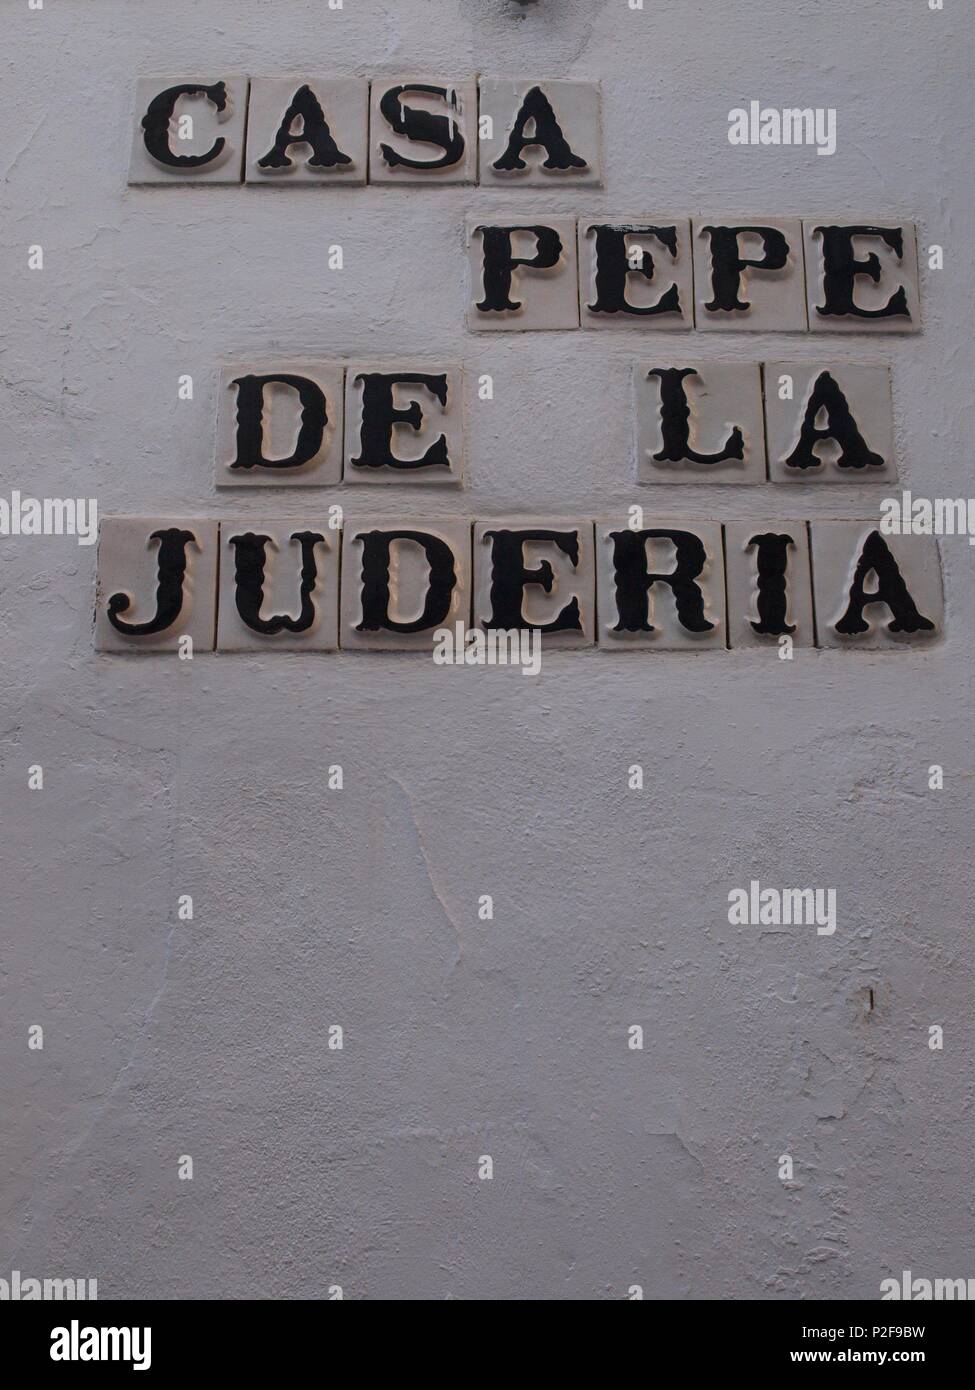 CASA
PEPE
DE LA
JUDERIA
alamy
Image ID: P2F9BW
www.alamy.com